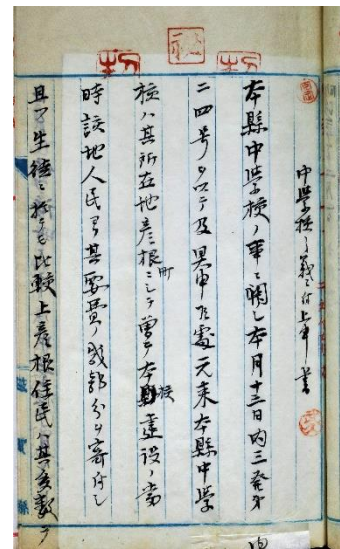 中学校ノ義ニ付上申書
本縣中学校ノ事ニ関シ本月十三日内三発第
二四号ヲ以テ及具申候處元来本縣中学
校ハ其所在地彦根町ニシテ曽テ本校建設ノ当
時該地人民ヨリ其要費ノ幾部分ヲ寄付シ
且ツ生徒ニ於テモ比較上彦根住民ハ其多数ヲ
滋賀縣